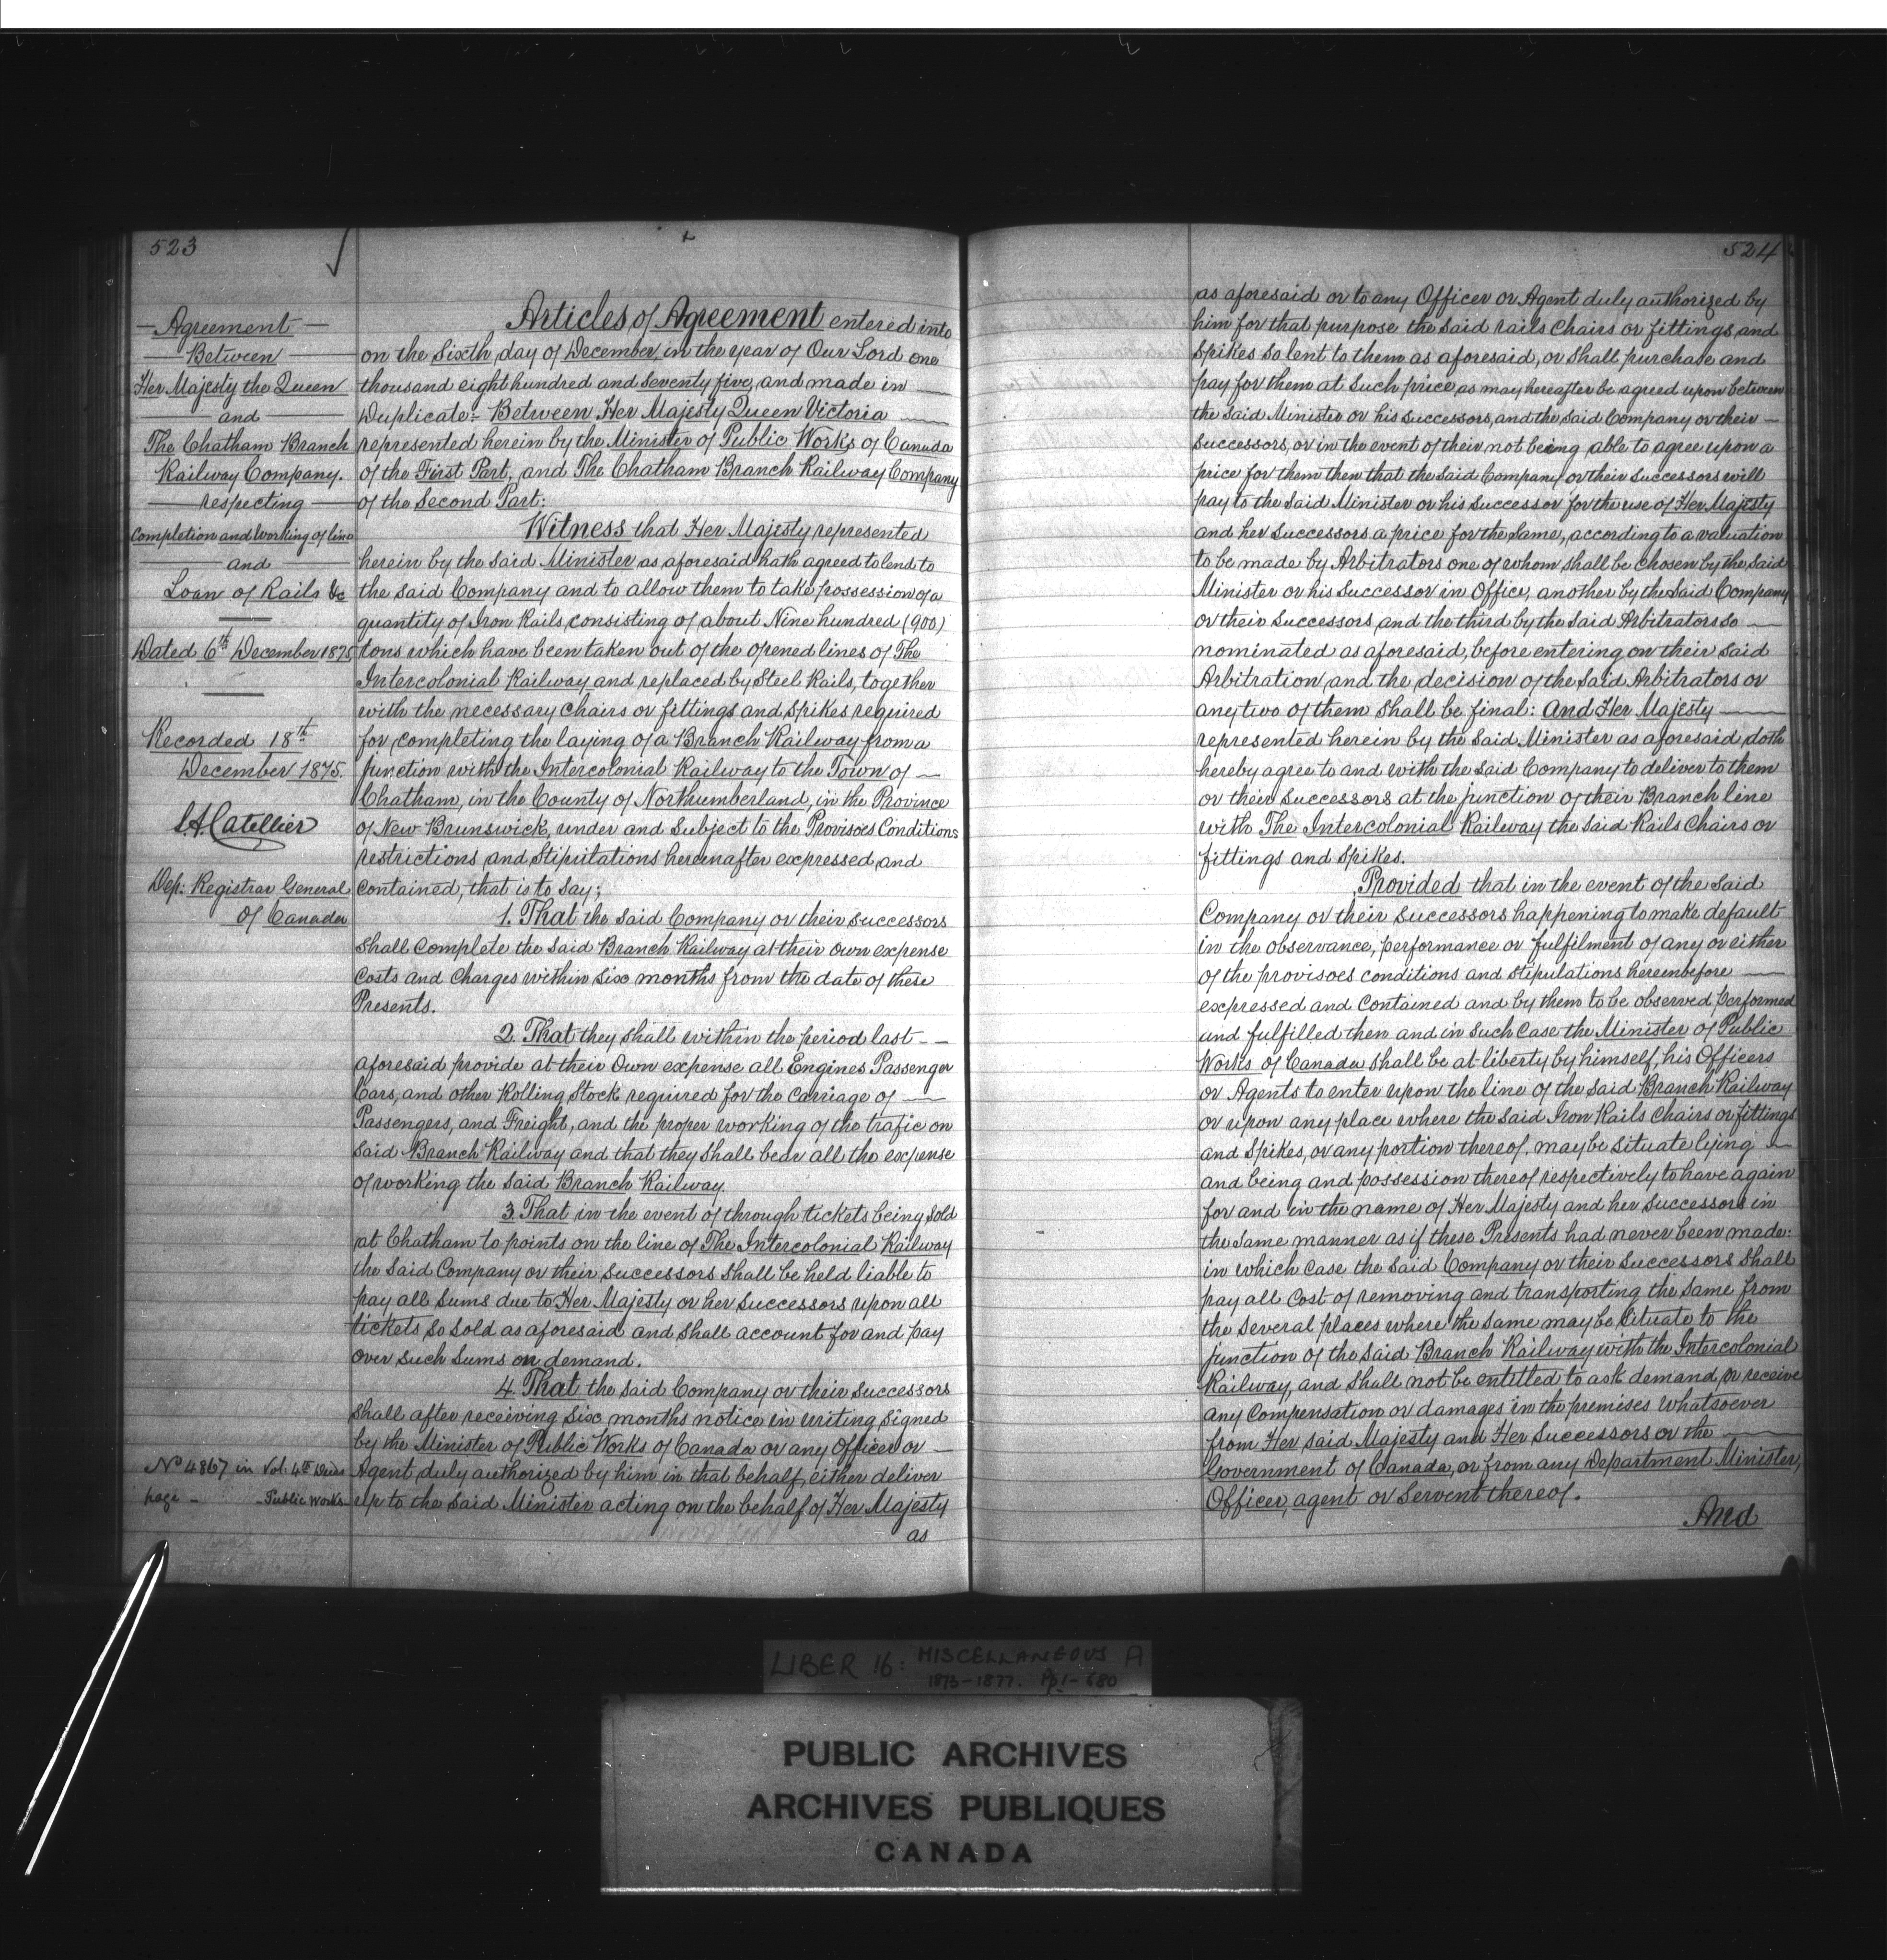 523
— Agreement —
Between
Her Majesty the Queen
and
The Chatham Branch
Railway Company.
respecting
Completion and Working of line
and
Loan of Rails &c
Dated 6th December 1875
Recorded 18th
December 1875.
L.A. Catellier
Dep: Registrar General
of Canada
No 4867 in Vol: 4th Deeds
page - - Public Works
Articles of Agreement entered into
on the Sixth day of December, in the year of Our Lord one
thousand eight hundred and Seventy five, and made in
Duplicate: Between Her Majesty Queen Victoria
represented herein by the Minister of Public Works of Canada
of the First Part, and The Chatham Branch Railway Company
of the Second Part:
Witness that Her Majesty represented
herein by the Said Minister as aforesaid hath agreed to lend to
the said Company and to allow them to take possession of a
quantity of Iron Rails, consisting of about Nine hundred (900)
tons which have been taken out of the opened lines of The
Intercolonial Railway and replaced by Steel Rails, together
with the necessary Chairs or fittings and Spikes required
for completing the laying of a Branch Railway from a
junction with the Intercolonial Railway to the Town of —
Chatham, in the County of Northumberland, in the Province
of New Brunswick, under and Subject to the Provisoes Conditions
restrictions and Stipulations hereinafter expressed and
contained, that is to say;
1. That the Said Company or their successors
Shall Complete the Said Branch Railway at their own expense
Costs and Charges within Six months from the date of these
Presents.
2. That they shall within the period last - -
aforesaid provide at their Own expense all Engines Passenger
Cars, and other Rolling Stock required for the Carriage of —
Passengers, and Freight, and the proper working of the trafic on
Said Branch Railway and that they Shall bear all the expense
of working the Said Branch Railway.
3. That in the event of through tickets being Sold
at Chatham to points on the line of The Intercolonial Railway
the Said Company or their successors shall be held liable to
pay all Sums due to Her Majesty or her Successors upon all
tickets so sold as aforesaid and shall account for and pay
over such Sums on demand.
4. That the Said Company or their Successors
Shall after receiving Six months notice in writing Signed
by the Minister of Public Works of Canada or any Officer or —
Agent, duly authorized by him in that behalf, either deliver
up to the Said Minister acting on the behalf of Her Majesty
as
524
as aforesaid or to any Officer or Agent duly authorized by
him for that purpose the Said rails Chairs or fittings and
Spikes so lent to them as aforesaid, or Shall purchase and
pay for them at Such price, as may hereafter be agreed upon between
the Said Minister or his Successors, and the Said Company or their —
Successors, or in the event of their not being able to agree upon a
price for them then that the Said Company or their Successors will
pay to the Said Minister or his Successor for the use of Her Majesty
and her Successors a price for the Same, according to a valuation
to be made by Arbitrators one of whom Shall be Chosen by the Said
Minister or his Successor in Office, another by the Said Company
or their Successors, and the third by the Said Arbitrators so —
nominated as aforesaid, before entering on their said
Arbitration, and the decision of the Said Arbitrators or
any two of them Shall be final: And Her Majesty —
represented herein by the Said Minister as aforesaid doth
hereby agree to and with the Said Company to deliver to them
or their Successors at the junction of their Branch line
with The Intercolonial Railway the Said Rails Chairs or
fittings and Spikes.
Provided that in the event of the Said
Company or their Successors happening to make default
in the observance, performance or fulfilment of any or either
of the provisoes conditions and Stipulations hereinbefore —
expressed and Contained and by them to be observed performed
and fulfilled then and in Such Case the Minister of Public
Works of Canada shall be at liberty by himself, his Officers
or Agents to enter upon the line of the Said Branch Railway
or upon any place where the Said Iron Rails Chairs or fittings
and Spikes, or any portion thereof may be Situate lying —
and being and possession thereof respectively to have again
for and in the name of Her Majesty and her Successors in
the Same manner as if these Presents had never been made:
in which Case the Said Company or their Successors Shall
pay all Cost of removing and transporting the Same from
the Several places where the same may be Situate to the
junction of the Said Branch Railway with the Intercolonial
Railway, and Shall not be entitled to ask demand or receive
any Compensation or damages in the premises whatsoever
from Her Said Majesty and Her Successors or the —
Government of Canada, or from any Department Minister,
Officer, agent or Servent thereof.
And
LIBER 16: MISCELLANEOUS A
1873-1877. Pp 1-680
PUBLIC ARCHIVES
ARCHIVES PUBLIQUES
CANADA